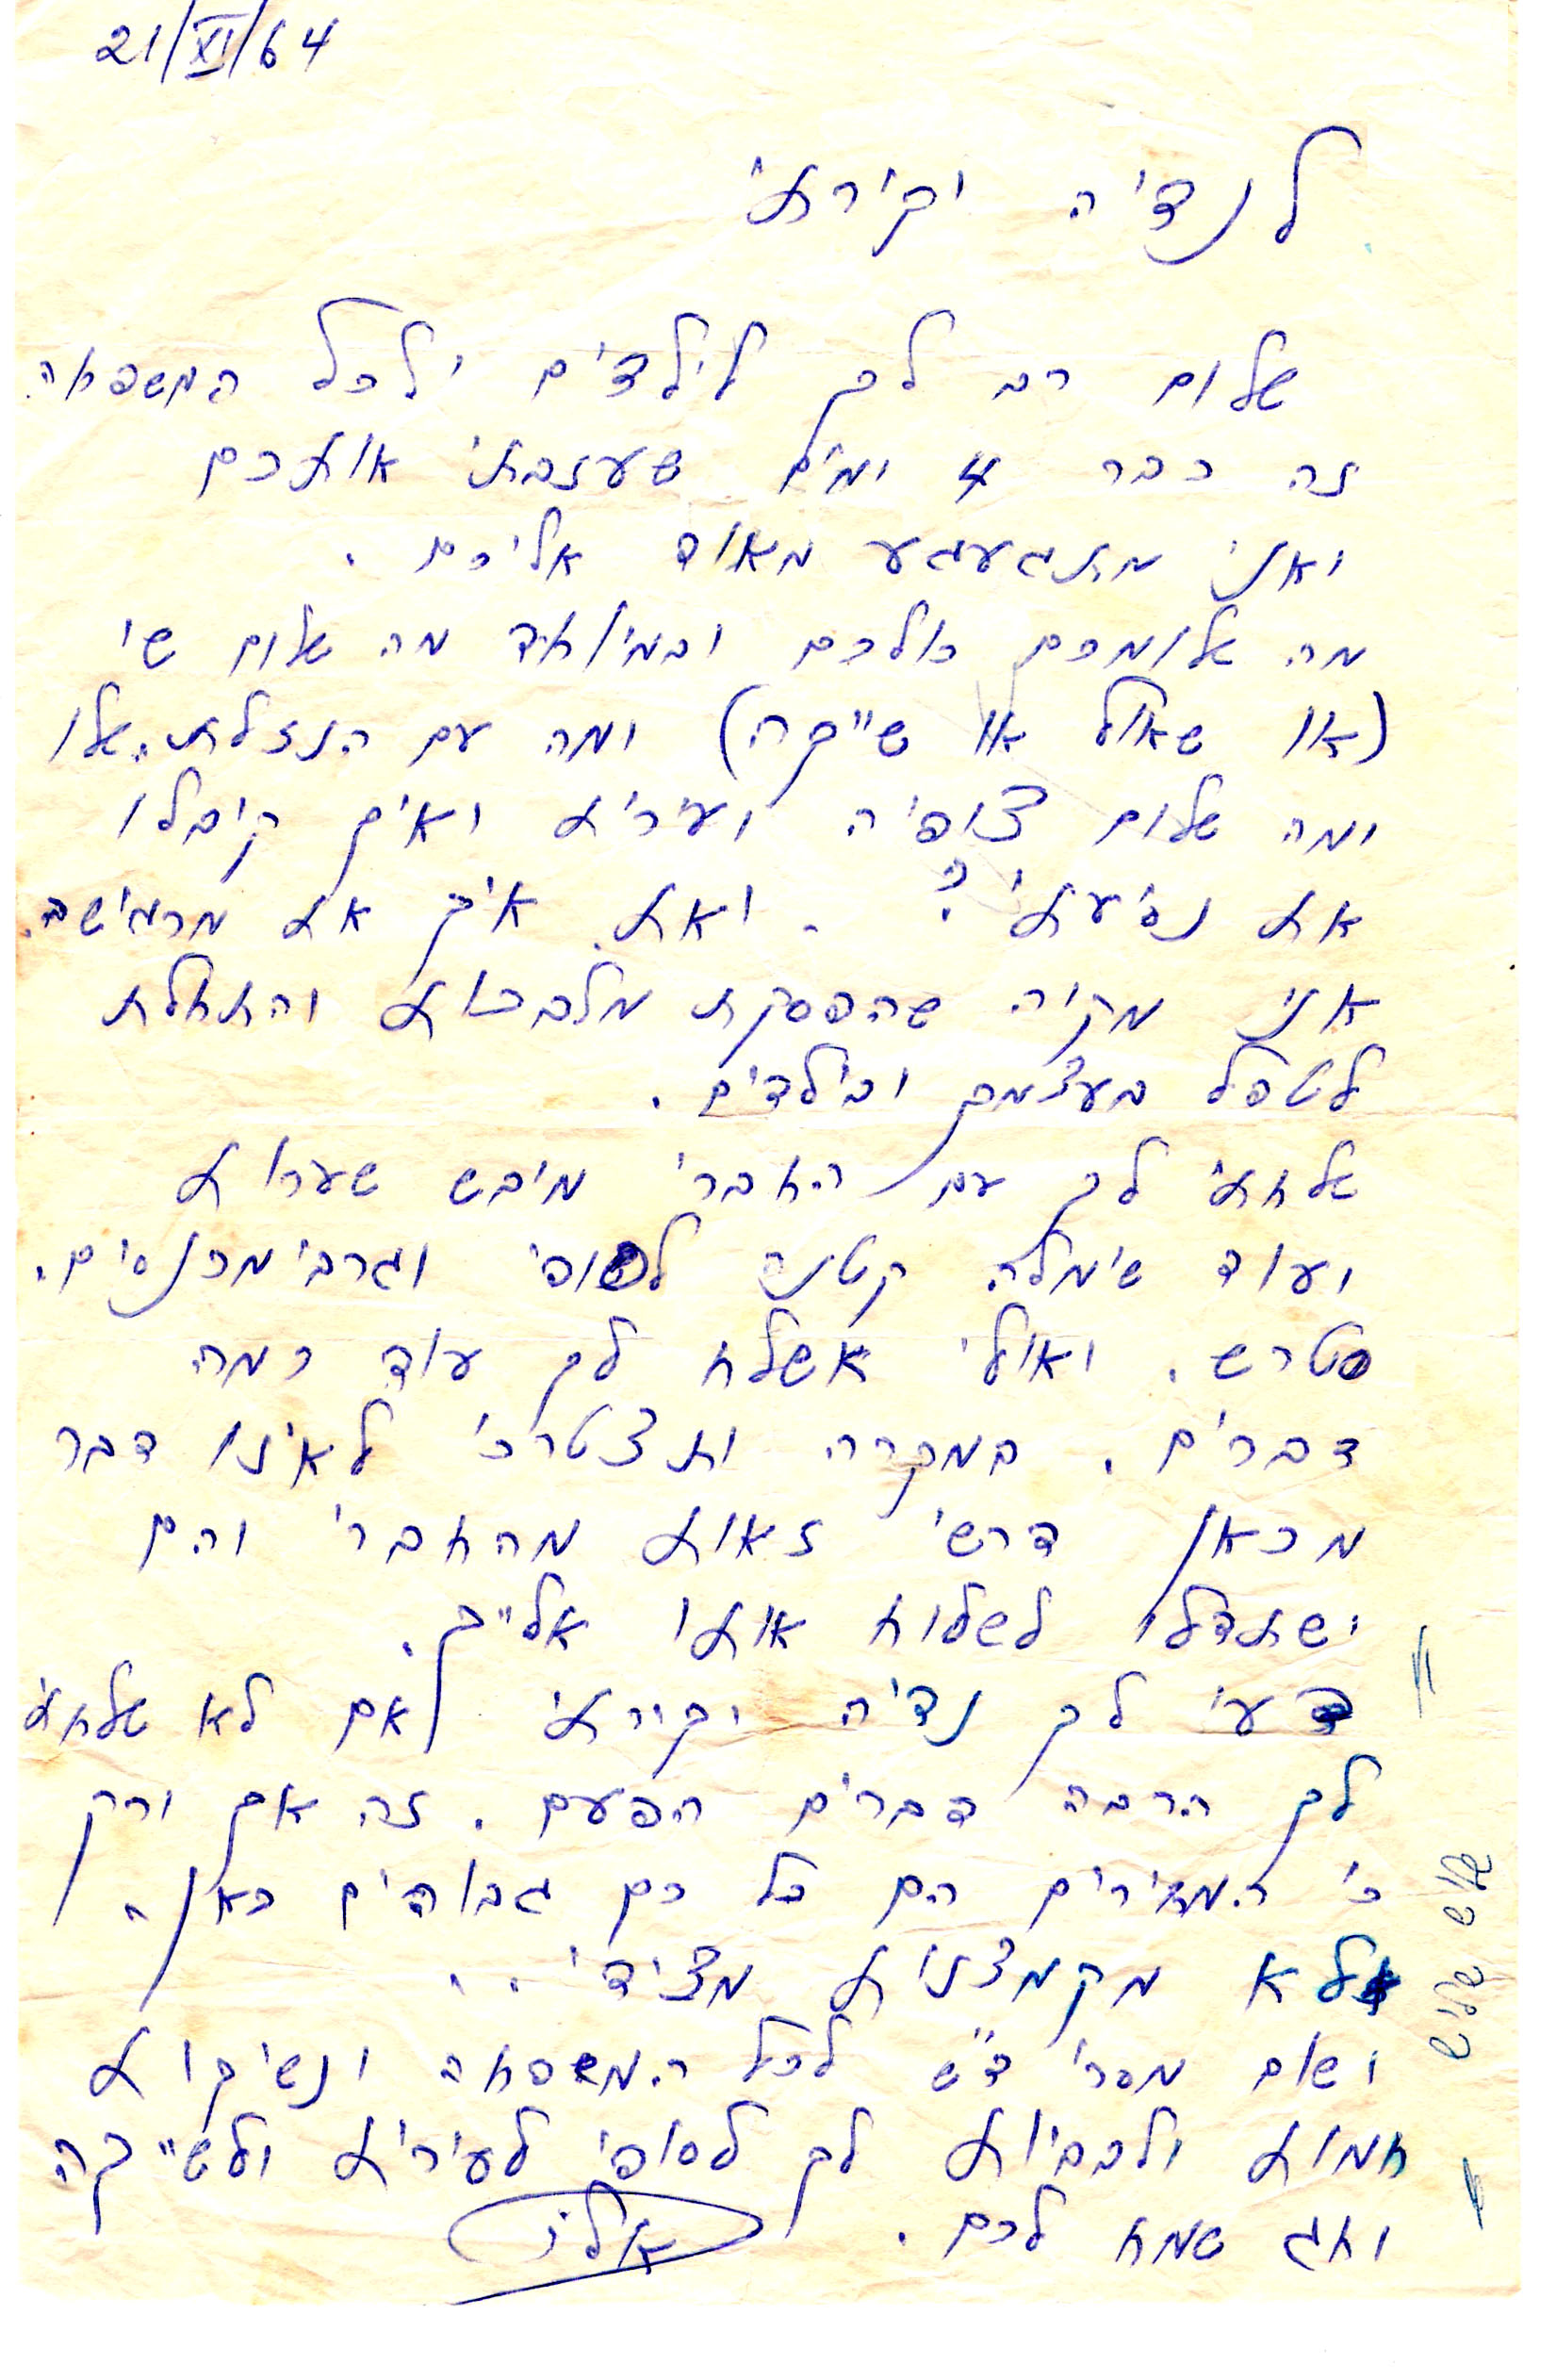 21/XI/64
לנדיה יקירתי
שלום רב לך לילדים ולכל המשפחה.
זה כבר 4 ימים שעזבתי אותכם
ואני מתגעגע מאוד אליכם.
מה שלומכם כולכם ובמיוחד מה שלום שי
(או שאול או שייקה) ומה עם הנזלת שלו
ומה שלום צופיה ועירית ואיך קיבלו
את נסיעתי? . ואת איך את מרגישה.
אני מקוה שהפסקת מלבכות והתחלת
לטפל בעצמך ובילדים.
שלחתי לך עם החברי מיבש שערות
ועוד שימלה קטנה לסופי וגרבי מכנסים.
סטרש. ואולי אשלח לך עוד כמה
דברים. במקרה ותצטרכי לאיזו דבר
מכאן דרשי זאות מהחברי והם
ישתדלו לשלוח אותו אלייך.
דעי לך נדיה יקירתי אם לא שלחתי
לך הרבה דברים הפעם. זה אך ורק
כי המחירים הם כל כך גבוהים כאן.
ולא מקמצנות מצידי..
ושוב מסרי ד"ש לכל המשפחה ונשיקות
חמות ולבביות לך לסופי לעירית ולשייקה
וחג שמח לכם.
אלי